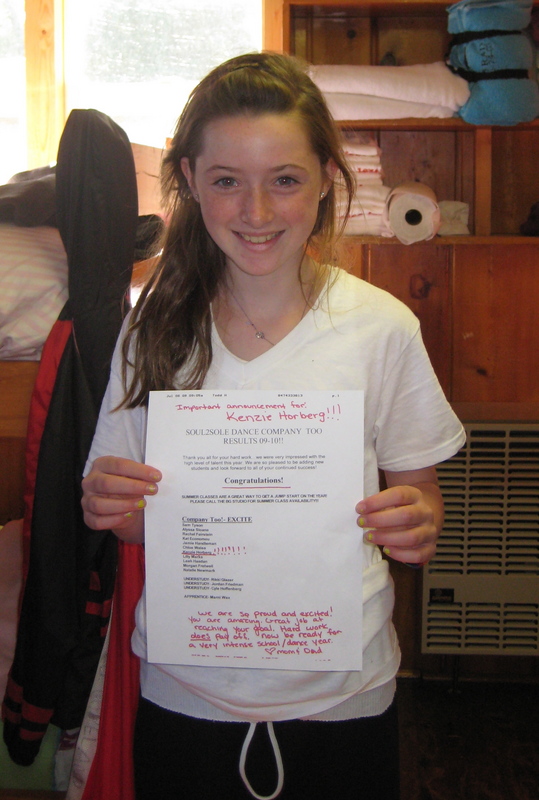 Important announcement for:
Kenzie Horberg!!!
SOUL2SOLE DANCE COMPANY TOO
RESULTS 09-10!!
Thank you all for your hard work...we were very impressed with the
high level of talent this year. We are so pleased to be adding new
students and look forward to all of your continued success!
Congratulations!
SUMMER CLASSES ARE A GREAT WAY TO GET A JUMP START ON THE YEAR
PLEASE CALL THE STUDIO FOR SUMMER CLASS AVAILABILITY!!
Company Too!- EXCITE
Rachel
Jamie Handleman
Chloe
Kenzie Horberg !!!!!!!
Lilly
Leah
Morgan
Natalie
UNDERSTUDY:
UNDERSTUDY: Jordan Friedman
UNDERSTUDY: Kyla
APPRENTICE:
We are so proud and excited!
You are amazing. Great job at
reaching your goal. Hard work
does pay off. Now be ready for
a very intense school/dance year.
♡ mom & Dad